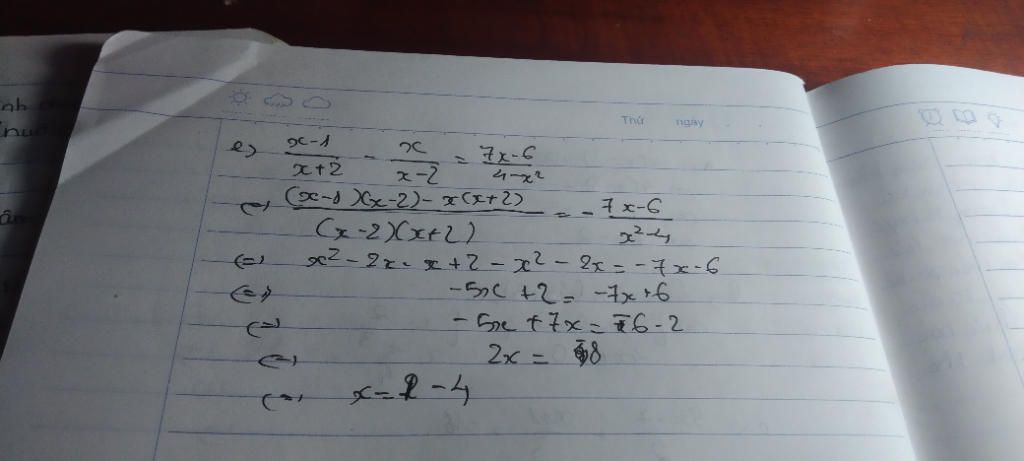 Thứ ngày
e) \frac{x-1}{x+2} - \frac{x}{x-2} = \frac{7x-6}{4-x²}
(=) \frac{(x-1)(x-2)-x(x+2)}{(x-2)(x+2)} = -\frac{7x-6}{x²-4}
(=) x²-2x-x+2-x²-2x=-7x-6
(=) -5x+2=-7x+6
(=) -5x+7x=-6-2
(=) 2x=-8
(=) x=-4